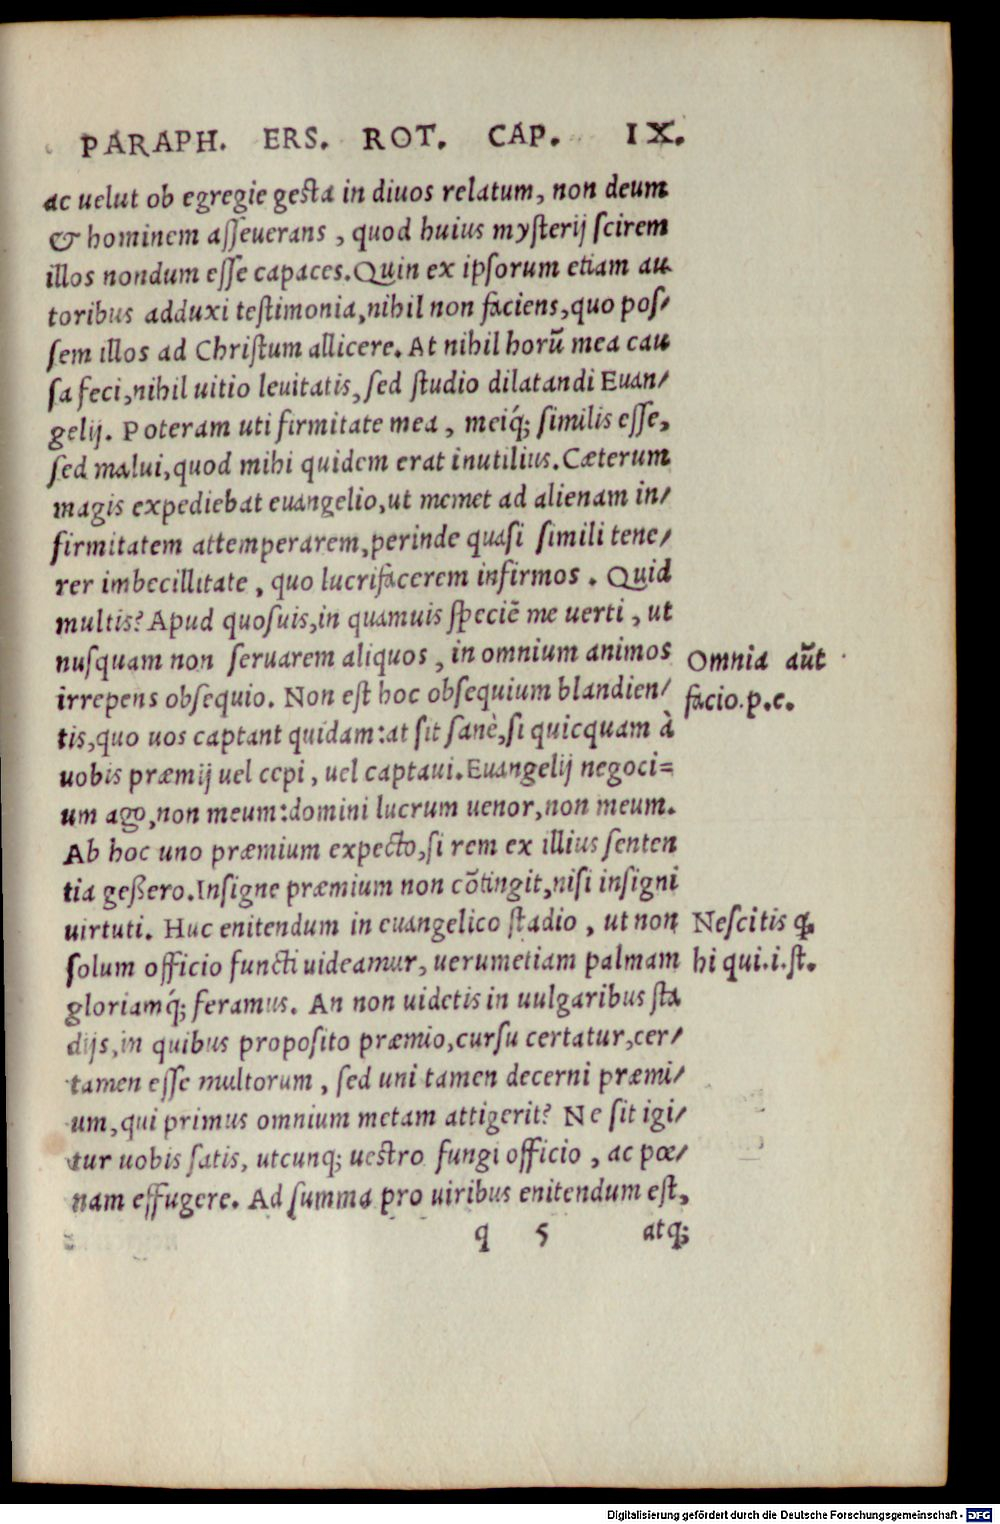 PARAPH. ERS. ROT. CAP. IX.
ac uelut ob egregie gesta in diuos relatum, non deum
& hominem asseuerans, quod huius mysterij scirem
illos nondum esse capaces. Quin ex ipsorum etiam au
toribus adduxi testimonia, nihil non faciens, quo pos/
sem illos ad Christum allicere. At nihil horū mea cau
sa feci, nihil uitio leuitatis, sed studio dilatandi Euan/
gelij. Poteram uti firmitate mea, meiq́; similis esse,
sed malui, quod mihi quidem erat inutilius. Cæterum
magis expediebat euangelio, ut memet ad alienam in/
firmitatem attemperarem, perinde quasi simili tene/
rer imbecillitate, quo lucrifacerem infirmos. Quid
multis? Apud quosuis, in quamuis speciē me uerti, ut
nusquam non seruarem aliquos, in omnium animos
Omnia aūt
irrepens obsequio. Non est hoc obsequium blandien/
facio.p.e.
tis, quo uos captant quidam: at sit sanè, si quicquam à
uobis præmij uel cepi, uel captaui. Euangelij negoci=
um ago, non meum: domini lucrum uenor, non meum.
Ab hoc uno præmium expecto, si rem ex illius senten
tia geßero. Insigne præmium non cōtingit, nisi insigni
uirtuti. Huc enitendum in euangelico stadio, ut non
Nescitis ꝙ
solum officio functi uideamur, uerumetiam palmam
hi qui.i.st.
gloriamq́; feramus. An non uidetis in uulgaribus sta
dijs, in quibus proposito præmio, cursu certatur, cer/
tamen esse multorum, sed uni tamen decerni præmi/
um, qui primus omnium metam attigerit? Ne sit igi/
tur uobis satis, utcunq; uestro fungi officio, ac pœ/
nam effugere. Ad summa pro uiribus enitendum est,
q 5 atq;
Digitalisierung gefördert durch die Deutsche Forschungsgemeinschaft - DFG